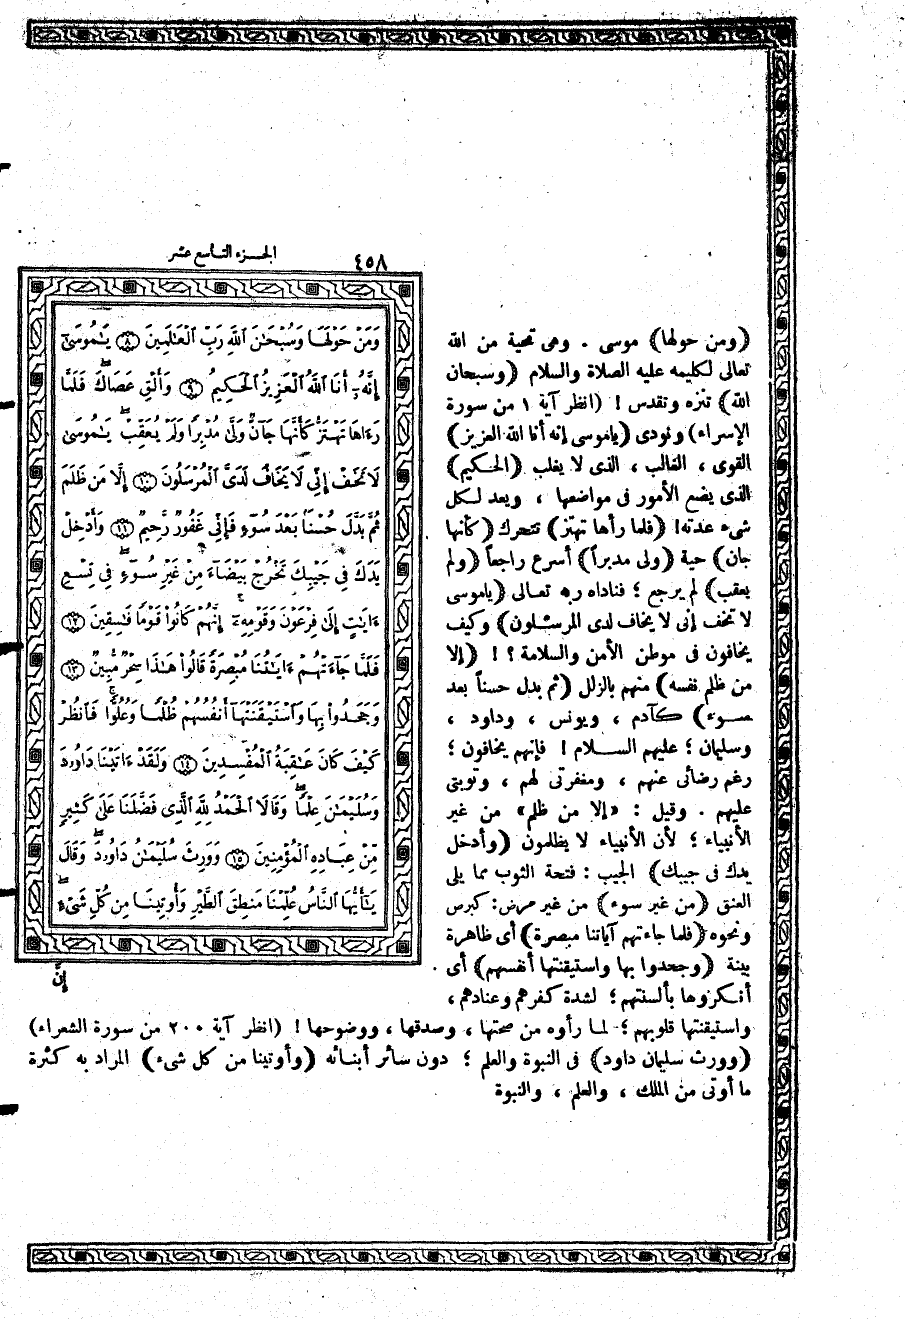 ٤٥٨
الجزء التاسع عشر
وَمَنْ حَوْلَهَا وَسُبْحَٰنَ ٱللَّهِ رَبِّ ٱلْعَٰلَمِينَ ٨ يَٰمُوسَىٰٓ
إِنَّهُۥٓ أَنَا ٱللَّهُ ٱلْعَزِيزُ ٱلْحَكِيمُ ٩ وَأَلْقِ عَصَاكَ ۚ فَلَمَّا
رَءَاهَا تَهْتَزُّ كَأَنَّهَا جَآنٌّ وَلَّىٰ مُدْبِرًا وَلَمْ يُعَقِّبْ ۚ يَٰمُوسَىٰ
لَا تَخَفْ إِنِّى لَا يَخَافُ لَدَىَّ ٱلْمُرْسَلُونَ ١٠ إِلَّا مَن ظَلَمَ
ثُمَّ بَدَّلَ حُسْنًۢا بَعْدَ سُوٓءٍ فَإِنِّى غَفُورٌ رَّحِيمٌ ١١ وَأَدْخِلْ
يَدَكَ فِى جَيْبِكَ تَخْرُجْ بَيْضَآءَ مِنْ غَيْرِ سُوٓءٍ ۖ فِى تِسْعِ
ءَايَٰتٍ إِلَىٰ فِرْعَوْنَ وَقَوْمِهِۦٓ ۚ إِنَّهُمْ كَانُوا۟ قَوْمًا فَٰسِقِينَ ١٢
فَلَمَّا جَآءَتْهُمْ ءَايَٰتُنَا مُبْصِرَةً قَالُوا۟ هَٰذَا سِحْرٌ مُّبِينٌ ١٣
وَجَحَدُوا۟ بِهَا وَٱسْتَيْقَنَتْهَآ أَنفُسُهُمْ ظُلْمًا وَعُلُوًّا ۚ فَٱنظُرْ
كَيْفَ كَانَ عَٰقِبَةُ ٱلْمُفْسِدِينَ ١٤ وَلَقَدْ ءَاتَيْنَا دَاوُۥدَ
وَسُلَيْمَٰنَ عِلْمًا ۖ وَقَالَا ٱلْحَمْدُ لِلَّهِ ٱلَّذِى فَضَّلَنَا عَلَىٰ كَثِيرٍ
مِّنْ عِبَادِهِ ٱلْمُؤْمِنِينَ ١٥ وَوَرِثَ سُلَيْمَٰنُ دَاوُۥدَ ۖ وَقَالَ
يَٰٓأَيُّهَا ٱلنَّاسُ عُلِّمْنَا مَنطِقَ ٱلطَّيْرِ وَأُوتِينَا مِن كُلِّ شَىْءٍ ۖ
إِنَّ
(ومن حولها) موسى . وهى تحية من الله
تعالى لكليمه عليه الصلاة والسلام (وسبحان
الله) تنزه وتقدس ! (انظر آية ١ من سورة
الإسراء) ونودى (ياموسى إنه أنا الله العزيز)
القوى ، الغالب ، الذى لا يغلب (الحكيم)
الذى يضع الأمور فى مواضعها ، ويعد لكل
شىء عدته! (فلما رآها تهتز) تتحرك (كأنها
جان) حية (ولى مدبراً) أسرع راجعاً (ولم
يعقب) لم يرجع ؛ فناداه ربه تعالى (ياموسى
لا تخف إنى لا يخاف لدى المرسلون) وكيف
يخافون فى موطن الأمن والسلامة ؟ ! (إلا
من ظلم نفسه) منهم بالزلل (ثم بدل حسناً بعد
سوء) كآدم ، ويونس ، وداود ،
وسليمان ؛ عليهم السلام ! فإنهم يخافون ؛
رغم رضائى عنهم ، ومغفرتى لهم ، وتوبتى
عليهم . وقيل : «إلا من ظلم» من غير
الأنبياء ؛ لأن الأنبياء لا يظلمون (وأدخل
يدك فى جيبك) الجيب : فتحة الثوب مما يلى
العنق (من غير سوء) من غير مرض: كبرص
ونحوه (فلما جاءتهم آياتنا مبصرة) أى ظاهرة
بينة (وجحدوا بها واستيقنتها أنفسهم) أى
أنكروها بألسنتهم ؛ لشدة كفرهم وعنادهم ،
واستيقنتها قلوبهم ؛ لما رأوه من صحتها ، وصدقها ، ووضوحها ! (انظر آية ٢٠٠ من سورة الشعراء)
(وورث سليمان داود) فى النبوة والعلم ؛ دون سائر أبنائه (وأوتينا من كل شىء) المراد به كثرة
ما أوتى من الملك ، والعلم ، والنبوة